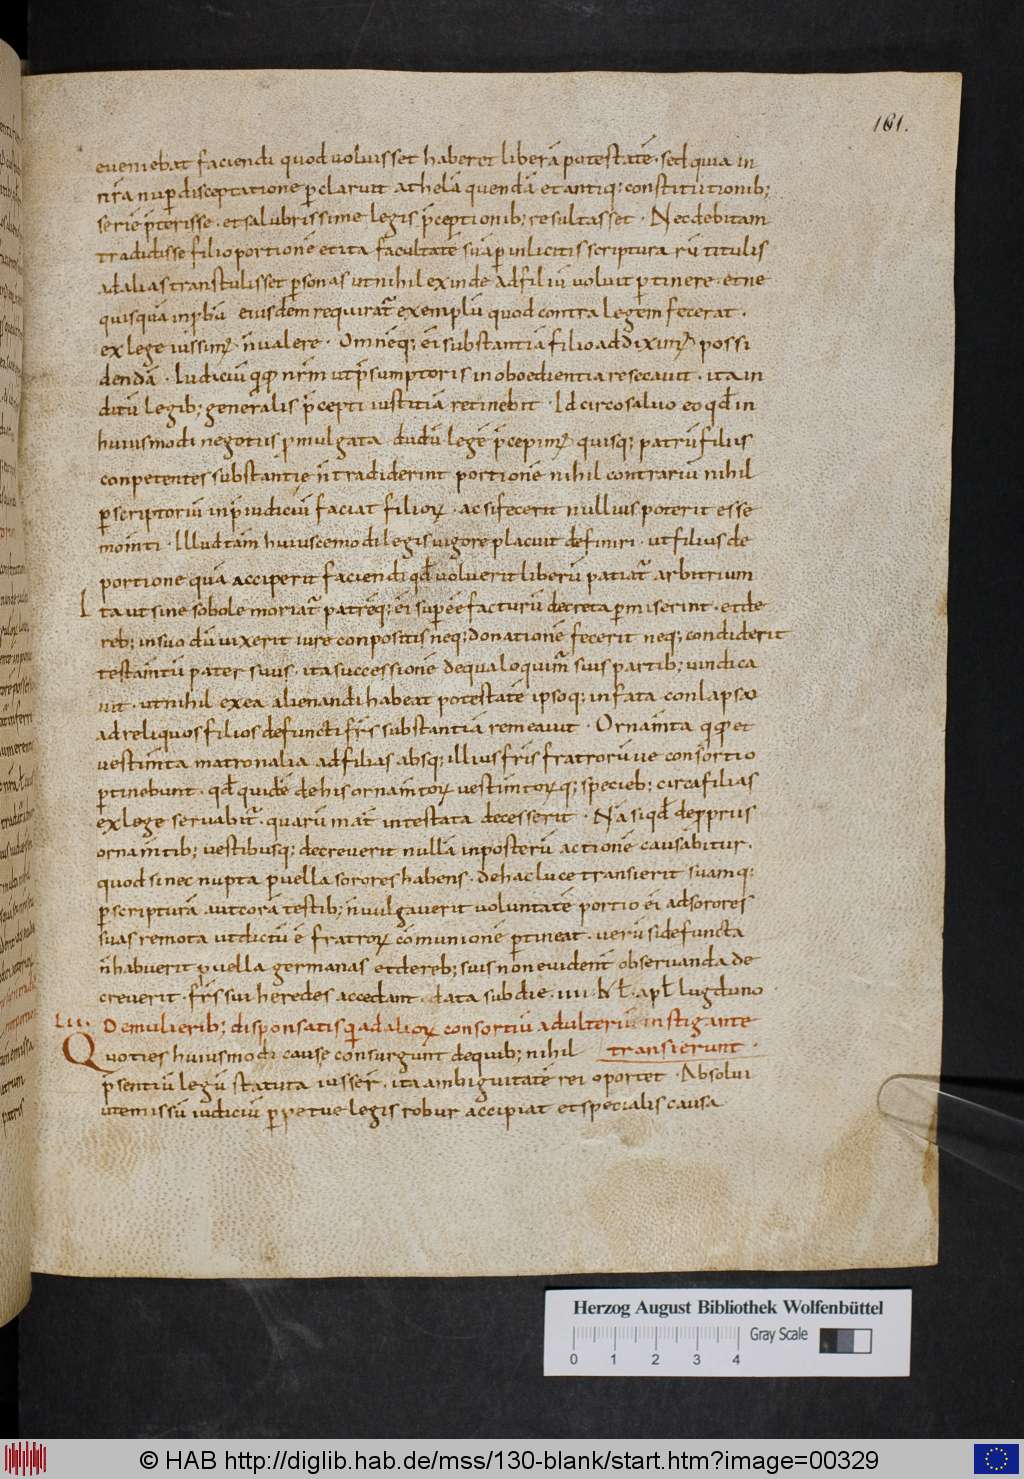 161.
eveniebat faciendi quod voluisset haberet liberā potestatē · sed quia in
nr̄a nup̄ disceptatione p̄claruit athelā quendā et antiq; constitutionib;
seriē p̄terisse · et salubrissime legis p̄ceptionib; resultasset · Nec debitam
tradidisse filio portionē et ita facultatē suā p̄ inlicitis scripturarū titulis
ad alias transtulisset p̄sonas ut nihil exinde ad filiū voluit p̄tinere · et ne
quisquā inp̄bū eiusdem requirat̄ exemplū quod contra legem fecerat ·
ex lege iussim⁊ n̄ valere · Omnēq; ei substantiā filio addixim⁊ possi
dendā · Iudiciū q̄q nr̄m ut p̄sumptoris inoboedientia resecavit · ita in
ditū legib; generalis p̄cepti iustitiā retinebit · Idcirco salvo eo qd̄ in
huiusmodi negotiis p̄mulgata dudū legē p̄cepim⁊ quisq; patrū filiis
conpetentes substantię n̄ tradiderint portionē nihil contrariū nihil
p̄scriptoriū in p̄iudiciū faciat filior⁊ · ac si fecerit nullius poterit esse
momti · Illud tam̄ huiuscemodi legis vigore placuit definiri · ut filius de
portione quā acciperit faciendi qd̄ voluerit liberū patiat̄ arbitrium
Ita ut sine sobole moriat̄ patrēq; ei sup̄ eē facturū decreta p̄miserint · et de
reb; in suo dū vixerit iure conpositis neq; donationē fecerit neq; condiderit
testam̄tū pater suus · ita successionē de qua loquim̄ suis partib; vindica
vit · ut nihil ex ea alienandi habeat potestatē ipsoq; in fata conlapso
ad reliquos filios defuncti fr̄is substantiā remeavit · Ornam̄ta q̄q et
vestim̄ta matronalia ad filias absq; illius fr̄is fratrorū ve consortio
p̄tinebunt · qd̄ quidē de his ornam̄tor⁊ vestim̄tor⁊q; specieb; circa filias
ex lege servabit̄ · quarū mat̄ intestata decesserit · Nā si qd̄ de p̄priis
ornam̄tib; vestibusq; decreverit nullā in posterū actionē causabitur ·
quod si nec nupta puella sorores habens · de hac luce transierit suamq;
p̄ scripturā aut corā testib; n̄ vulgaverit voluntatē portio ei ad sorores
suas remota ut dictū ē fratror⁊ cōmunionē p̄tineat · verū si defuncta
n̄ habuerit puella germanas et de reb; suis non evident̄ observanda de
creverit · fr̄s sui heredes accedant · data sub die · IIII · kł · apł lugduno
LII · De mulierib; disponsatis q̄ ad alior⁊ consortiū adulteriū instigante
Quoties huiusmodi cause consurgunt de quib; nihil transierunt ·
p̄sentiū legū statuta iusser̄ · ita ambiguitatē rei oportet · Absolvi
ut emissū iudiciū p̄petue legis robur accipiat et specialis causa
Herzog August Bibliothek Wolfenbüttel
Gray Scale
0 1 2 3 4
© HAB http://diglib.hab.de/mss/130-blank/start.htm?image=00329